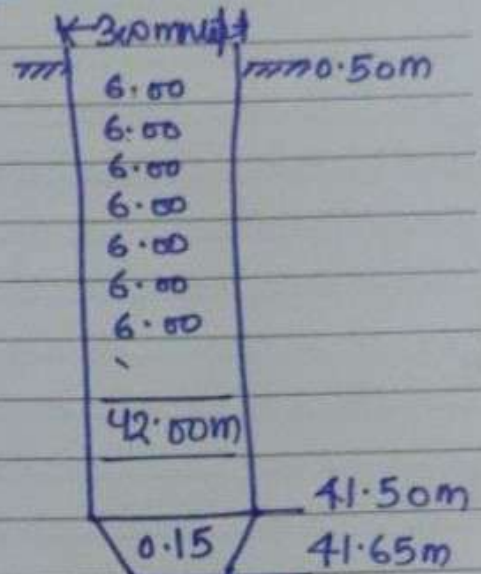 0.50m
6.00
6.00
6.00
6.00
6.00
6.00
6.00
42.00m
41.50m
0.15 41.65m